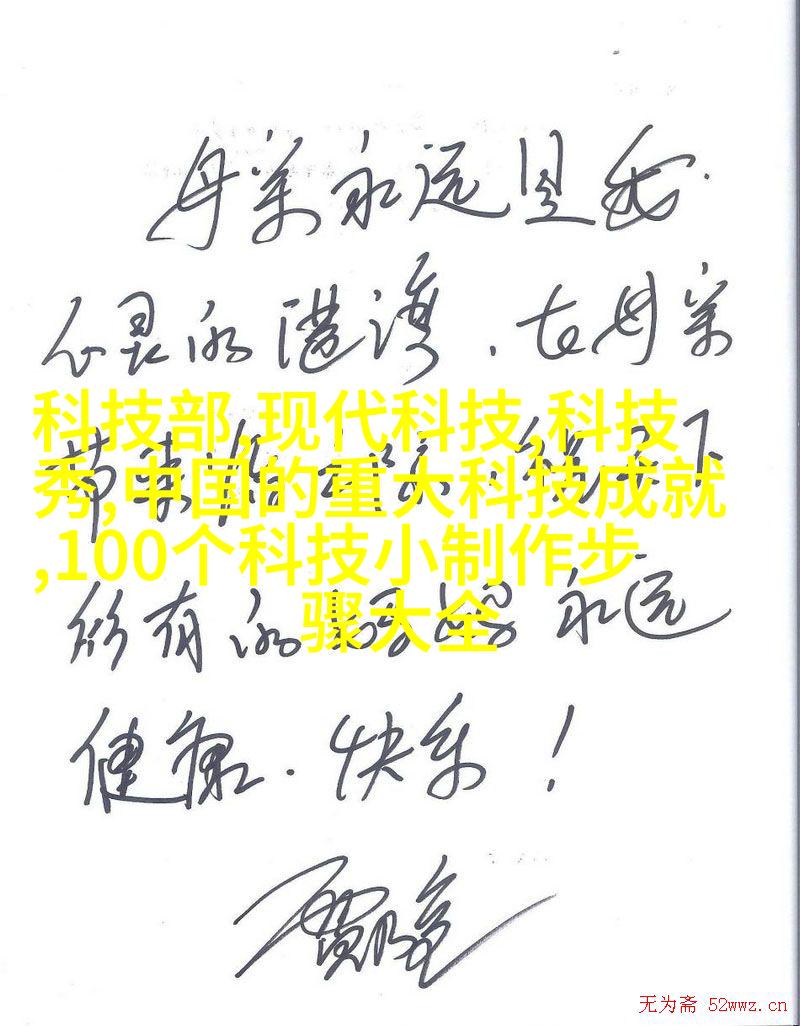 母亲永远是我
心灵的港湾，在母亲
科技部,现代科技,科技
节来临之际，祝天下
秀,中国的重大科技成就
,100个科技小制作步
所有的母亲永远
骤大全
健康、快乐！
无为斋 52wwz.cn